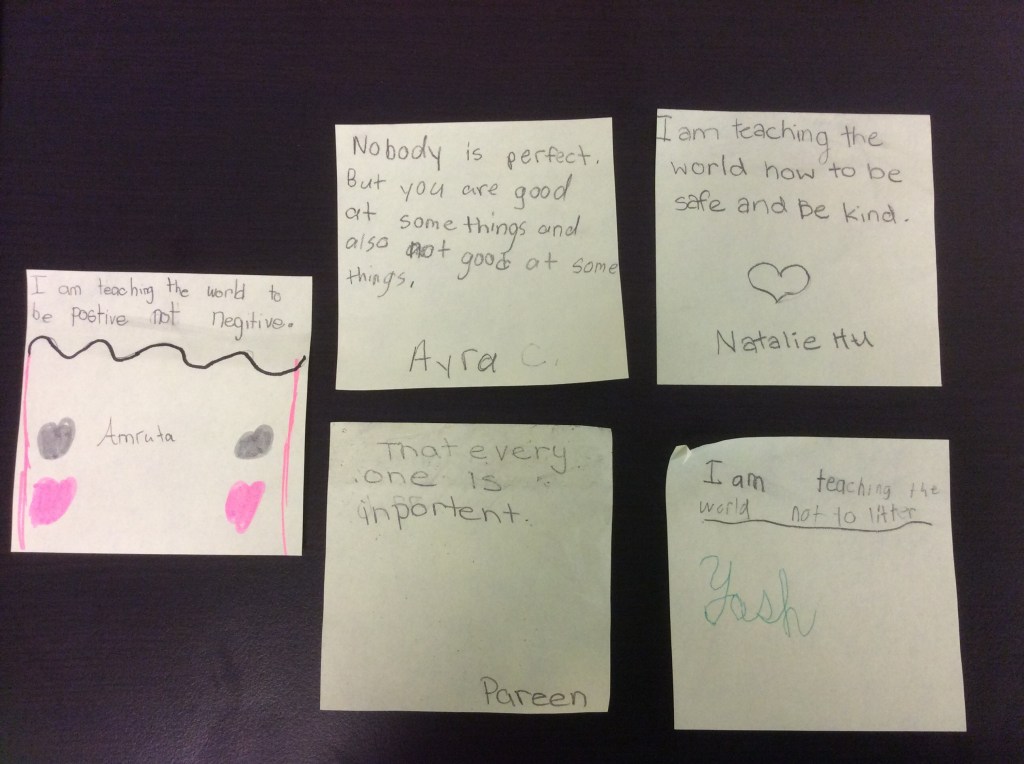 I am teaching the world to
be postive not negitive.
Amruta
Nobody is perfect.
But you are good
at some things and
also not good at some
things.
Ayra C.
I am teaching the
world how to be
safe and Be kind.
Natalie Hu
That every
one is
inportent.
Pareen
I am teaching the
world not to litter
Yash